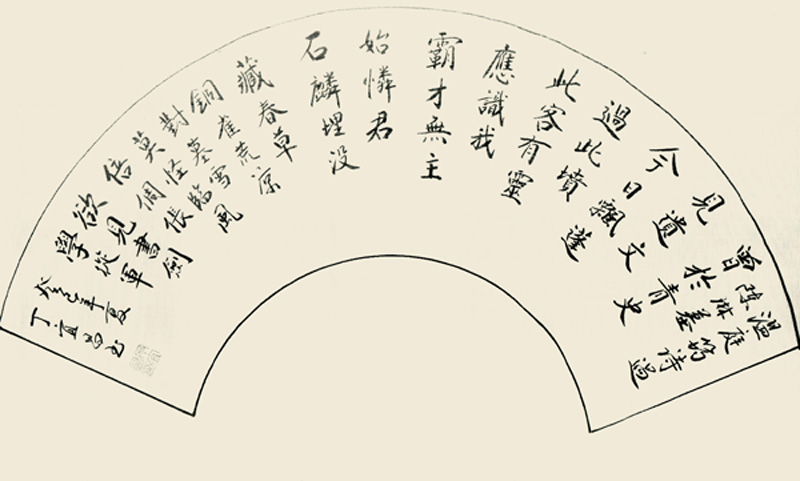 温庭筠詩過
陳琳墓
曾於青史
見遺文
今日飄蓬
過此墳
此客有靈
應識我
霸才無主
始憐君
石麟埋没
藏春草
銅雀荒凉
對墓雪
莫怪臨風
倍惆悵
欲見書劍
學從軍
癸巳年夏
丁宜书